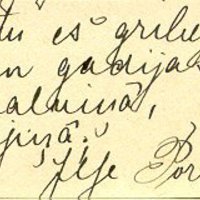 tu es gribe
n gadijas
alninā,
jinā.
Ilse Por